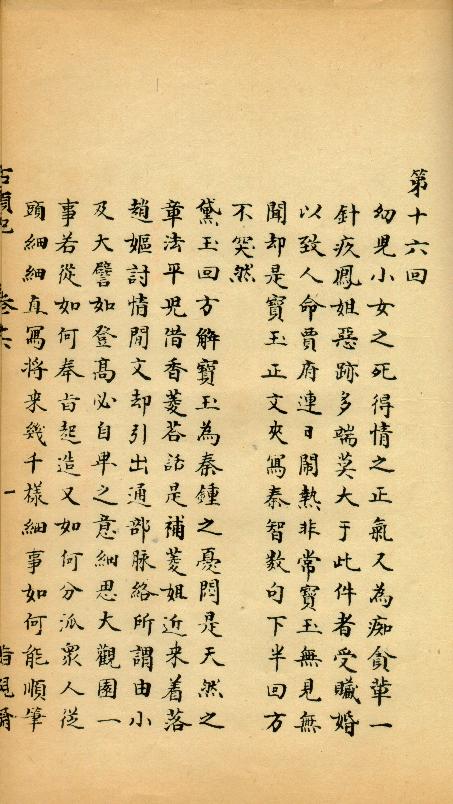 第十六回
幼児小女之死得情之正氣又為痴貪輩一
針疚鳳姐惡跡多端莫大于此件者受贓婚
以致人命賈府連日鬧熱非常寶玉無見無
聞却是寶玉正文夾寫秦智数句下半回方
不突然
黛玉回方解寶玉為秦鍾之憂悶是天然之
章法平児借香菱荅話是補菱姐近来着落
趙嫗討情閒文却引出通部脉絡所謂由小
及大譬如登髙必自卑之意細思大觀園一
事若從如何奉旨起造又如何分派眾人從
頭細細直寫将来幾千樣細事如何能順筆